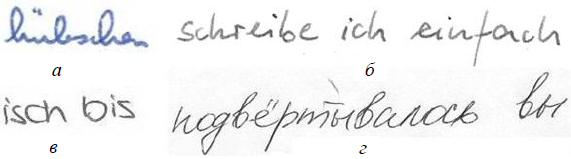 hübschen schreibe ich einfach
а б
isch bis подвёртывалось вы
в г